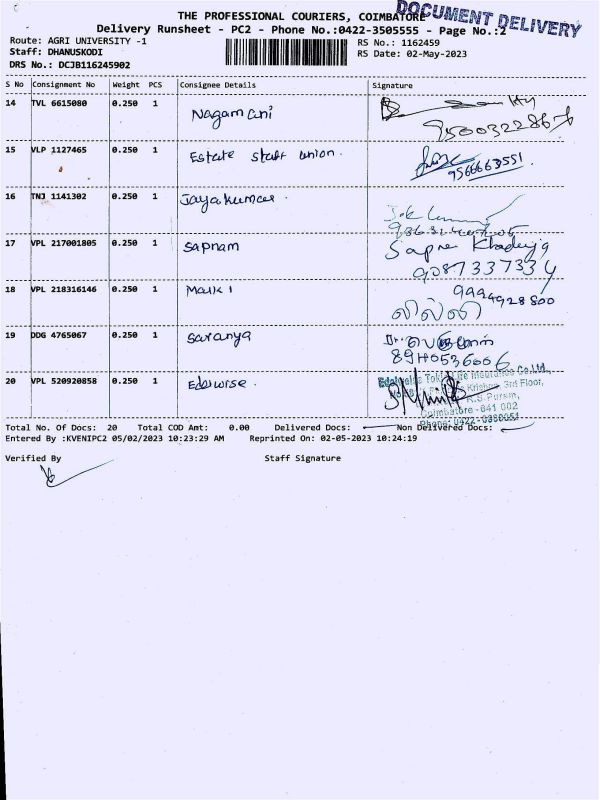 THE PROFESSIONAL COURIERS, COIMBATORE
DOCUMENT DELIVERY
Delivery Runsheet - PC2 - Phone No.:0422-3505555 - Page No.:2
Route: AGRI UNIVERSITY -1
RS No.: 1162459
Staff: DHANUSKODI
RS Date: 02-May-2023
DRS No.: DCJB116245902
S No Consignment No Weight PCS Consignee Details Signature
14 TVL 6615080 0.250 1 Nagamani
9500322867
15 VLP 1127465 0.250 1 Estate staff union.
9566663551
16 TNJ 1141302 0.250 1 Jayakumar.
17 VPL 217001805 0.250 1 Sapnam
9087337334
18 VPL 218316146 0.250 1 Malki
9994928800
லில்லி
19 DDG 4765067 0.250 1 Saranya
20 VPL 520920858 0.250 1 Edelwise.
Edelweiss Tokio Life Insurance Co.Ltd.,
Krishna, 3rd Floor,
R.S.Puram,
Coimbatore - 641 002
Total No. Of Docs: 20 Total COD Amt: 0.00 Delivered Docs: Non Delivered Docs:
Entered By :KVENIPC2 05/02/2023 10:23:29 AM Reprinted On: 02-05-2023 10:24:19
Verified By Staff Signature